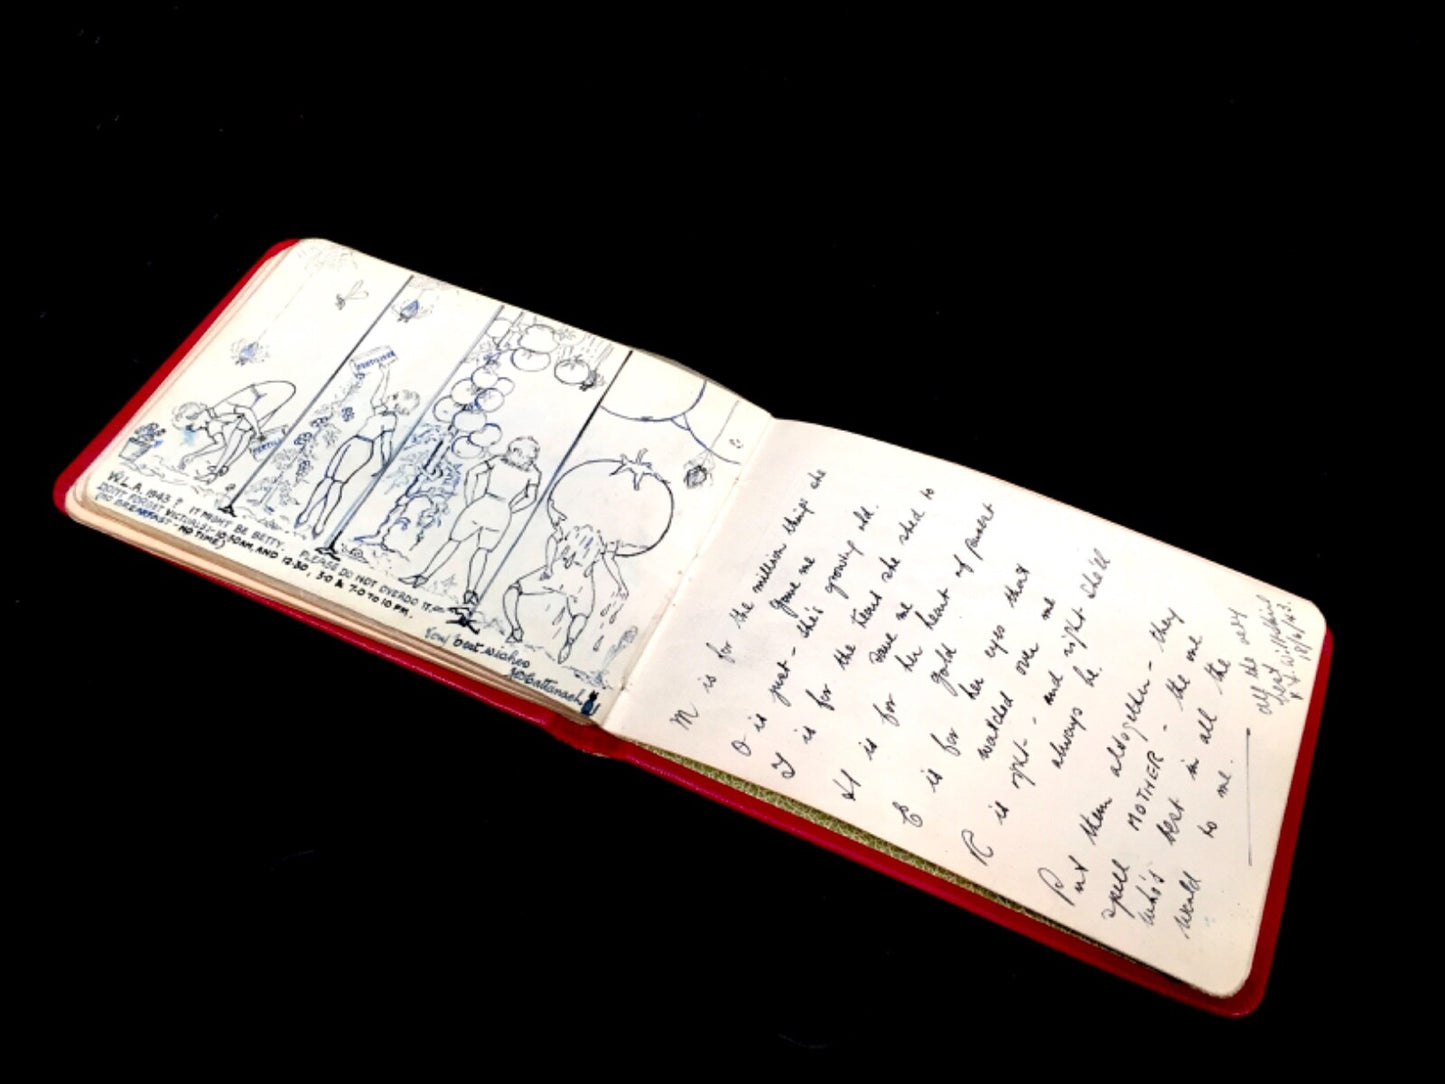 FERTILISER
W.L.A. 1943? IT MIGHT BE BETTY. PLEASE DO NOT OVERDO IT,
DONT FORGET VICTUALS:- 10.30AM. AND 12.30, 3.0 & 7.0 TO 10 PM.
(NO BREAKFAST - NO TIME)
best wishes
M is for the million things she
gave me
O is just - she's growing old.
T is for the tears she shed to
save me
H is for her heart of purest
gold
E is for her eyes that
watched over me
R is right - and right shell
always be.
Put them altogether - they
spell MOTHER - the one
who's best in all the
world to me.
all the very
best
18/4/43.